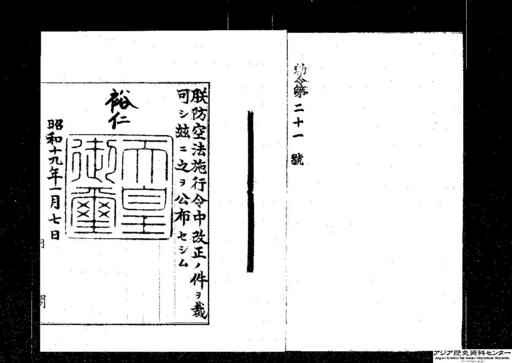 勅令第二十一號
朕防空法施行令中改正ノ件ヲ裁
可シ茲ニ之ヲ公布セシム
裕仁
天皇御璽
昭和十九年一月七日
アジア歴史資料センター
Japan Center for Asian Historical Records